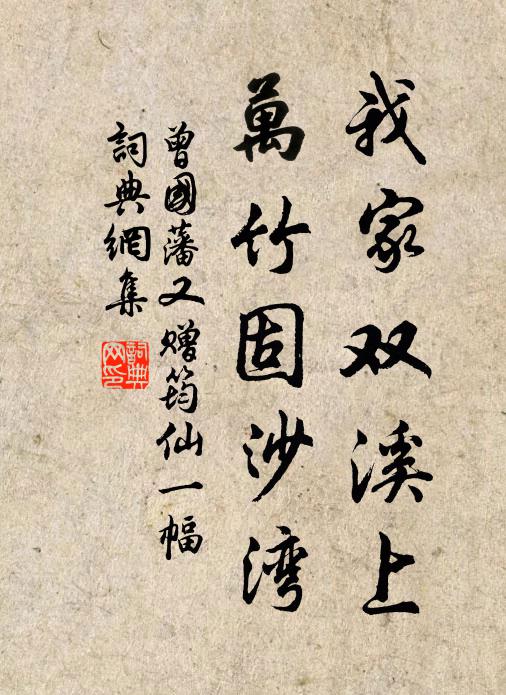 我家双溪上
萬竹固沙湾
曾國藩又赠筠仙一幅
詞典網集
詞典網印